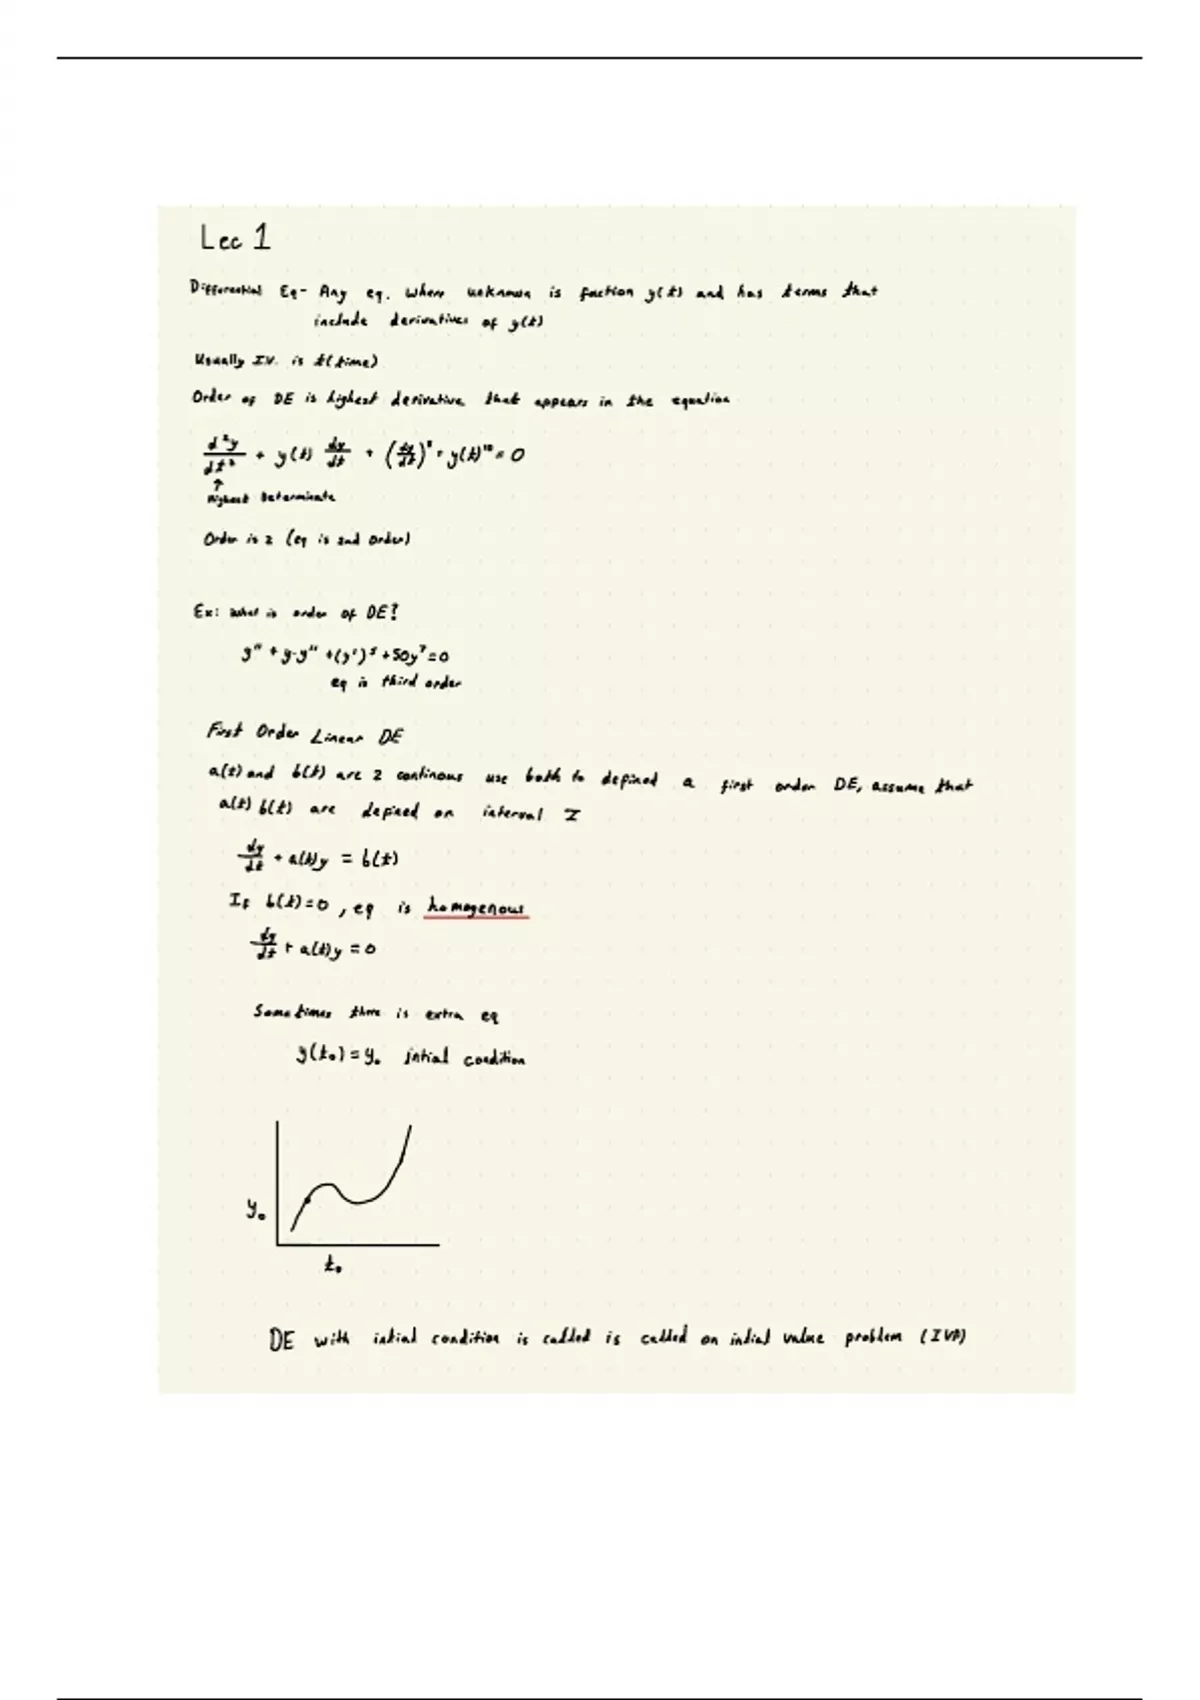 Lec 1
Differential Eq- Any eq. where unknown is fuction y(t) and has terms that
include derivatives of y(t)
Usually I.V. is t(time)
Order of DE is highest derivative that appears in the equation
d²y/dt² + y(t) dy/dt + (dy/dt)⁸ + y(t)¹⁰ = 0
↑
Highest Determinate
Order is 2 (eq is 2nd order)
Ex: What is order of DE?
+ y·y'' + (y')⁵ + 50y⁷ = 0
eq is third order
First Order Linear DE
a(t) and b(t) are 2 continous use both to defined a first order DE, assume that
a(t) b(t) are defined on interval I
dy/dt + a(t)y = b(t)
If b(t)=0, eq is homogenous
dy/dt + a(t)y = 0
Sometimes there is extra eq
y(t₀) = y₀ intial condition
y₀
t₀
DE with intial condition is called is called on intial value problem (IVP)